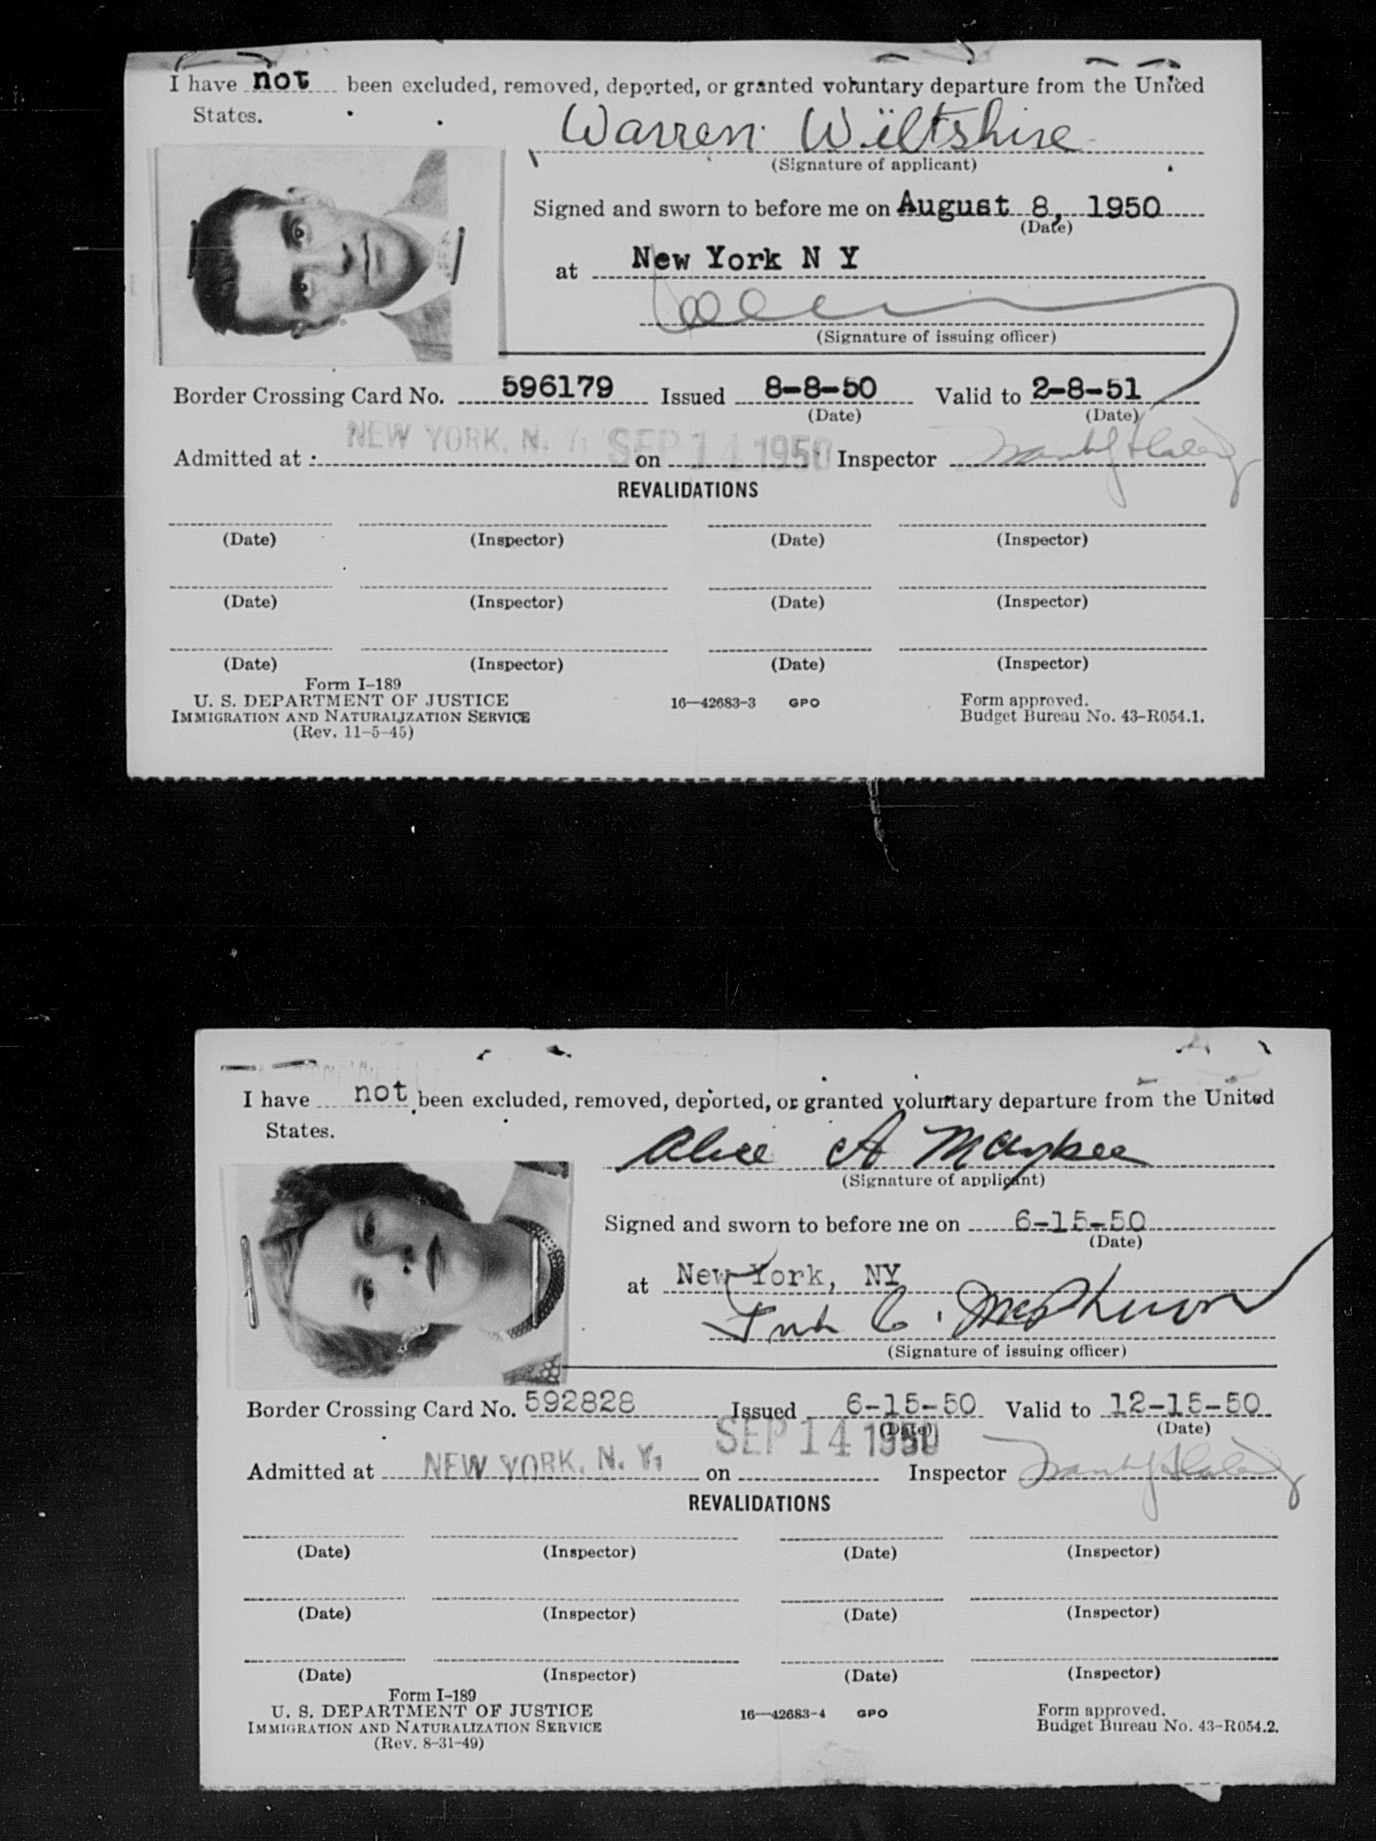 I have not been excluded, removed, deported, or granted voluntary departure from the United
States.
Warren Wiltshire
(Signature of applicant)
Signed and sworn to before me on August 8, 1950
(Date)
at New York N Y
(Signature of issuing officer)
Border Crossing Card No. 596179 Issued 8-8-50 Valid to 2-8-51
(Date) (Date)
Admitted at : NEW YORK, N. Y. on SEP 14 1950 Inspector
REVALIDATIONS
(Date) (Inspector) (Date) (Inspector)
(Date) (Inspector) (Date) (Inspector)
(Date) (Inspector) (Date) (Inspector)
Form I-189
U. S. DEPARTMENT OF JUSTICE 16—42683-3 GPO Form approved.
IMMIGRATION AND NATURALIZATION SERVICE Budget Bureau No. 43-R054.1.
(Rev. 11-5-45)
I have not been excluded, removed, deported, or granted voluntary departure from the United
States.
Alice A Maybee
(Signature of applicant)
Signed and sworn to before me on 6-15-50
(Date)
at New York, NY
(Signature of issuing officer)
Border Crossing Card No. 592828 Issued 6-15-50 Valid to 12-15-50
(Date) (Date)
Admitted at NEW YORK, N. Y. on SEP 14 1950 Inspector
REVALIDATIONS
(Date) (Inspector) (Date) (Inspector)
(Date) (Inspector) (Date) (Inspector)
(Date) (Inspector) (Date) (Inspector)
Form I-189
U. S. DEPARTMENT OF JUSTICE 16—42683-4 GPO Form approved.
IMMIGRATION AND NATURALIZATION SERVICE Budget Bureau No. 43-R054.2.
(Rev. 8-31-49)